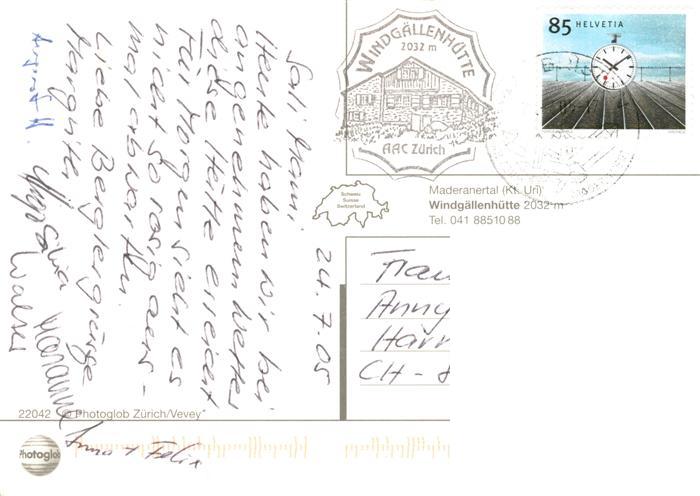 85 HELVETIA
WINDGÄLLENHÜTTE
2032 m
AAC Zürich
Schweiz
Suisse
Switzerland
Maderanertal (Kt. Uri)
Windgällenhütte 2032 m
Tel. 041 885 10 88
24. 7. 05
Heute haben wir bei
angenehmem Wetter
diese Hütte erreicht
Für Morgen sieht es
nicht so rosig aus –
mal abwarten.
Liebe Bergler grüsse
Margrith
Walter
+ Felix
Frau
Anny
CH - 8
22042 © Photoglob Zürich/Vevey
Photoglob